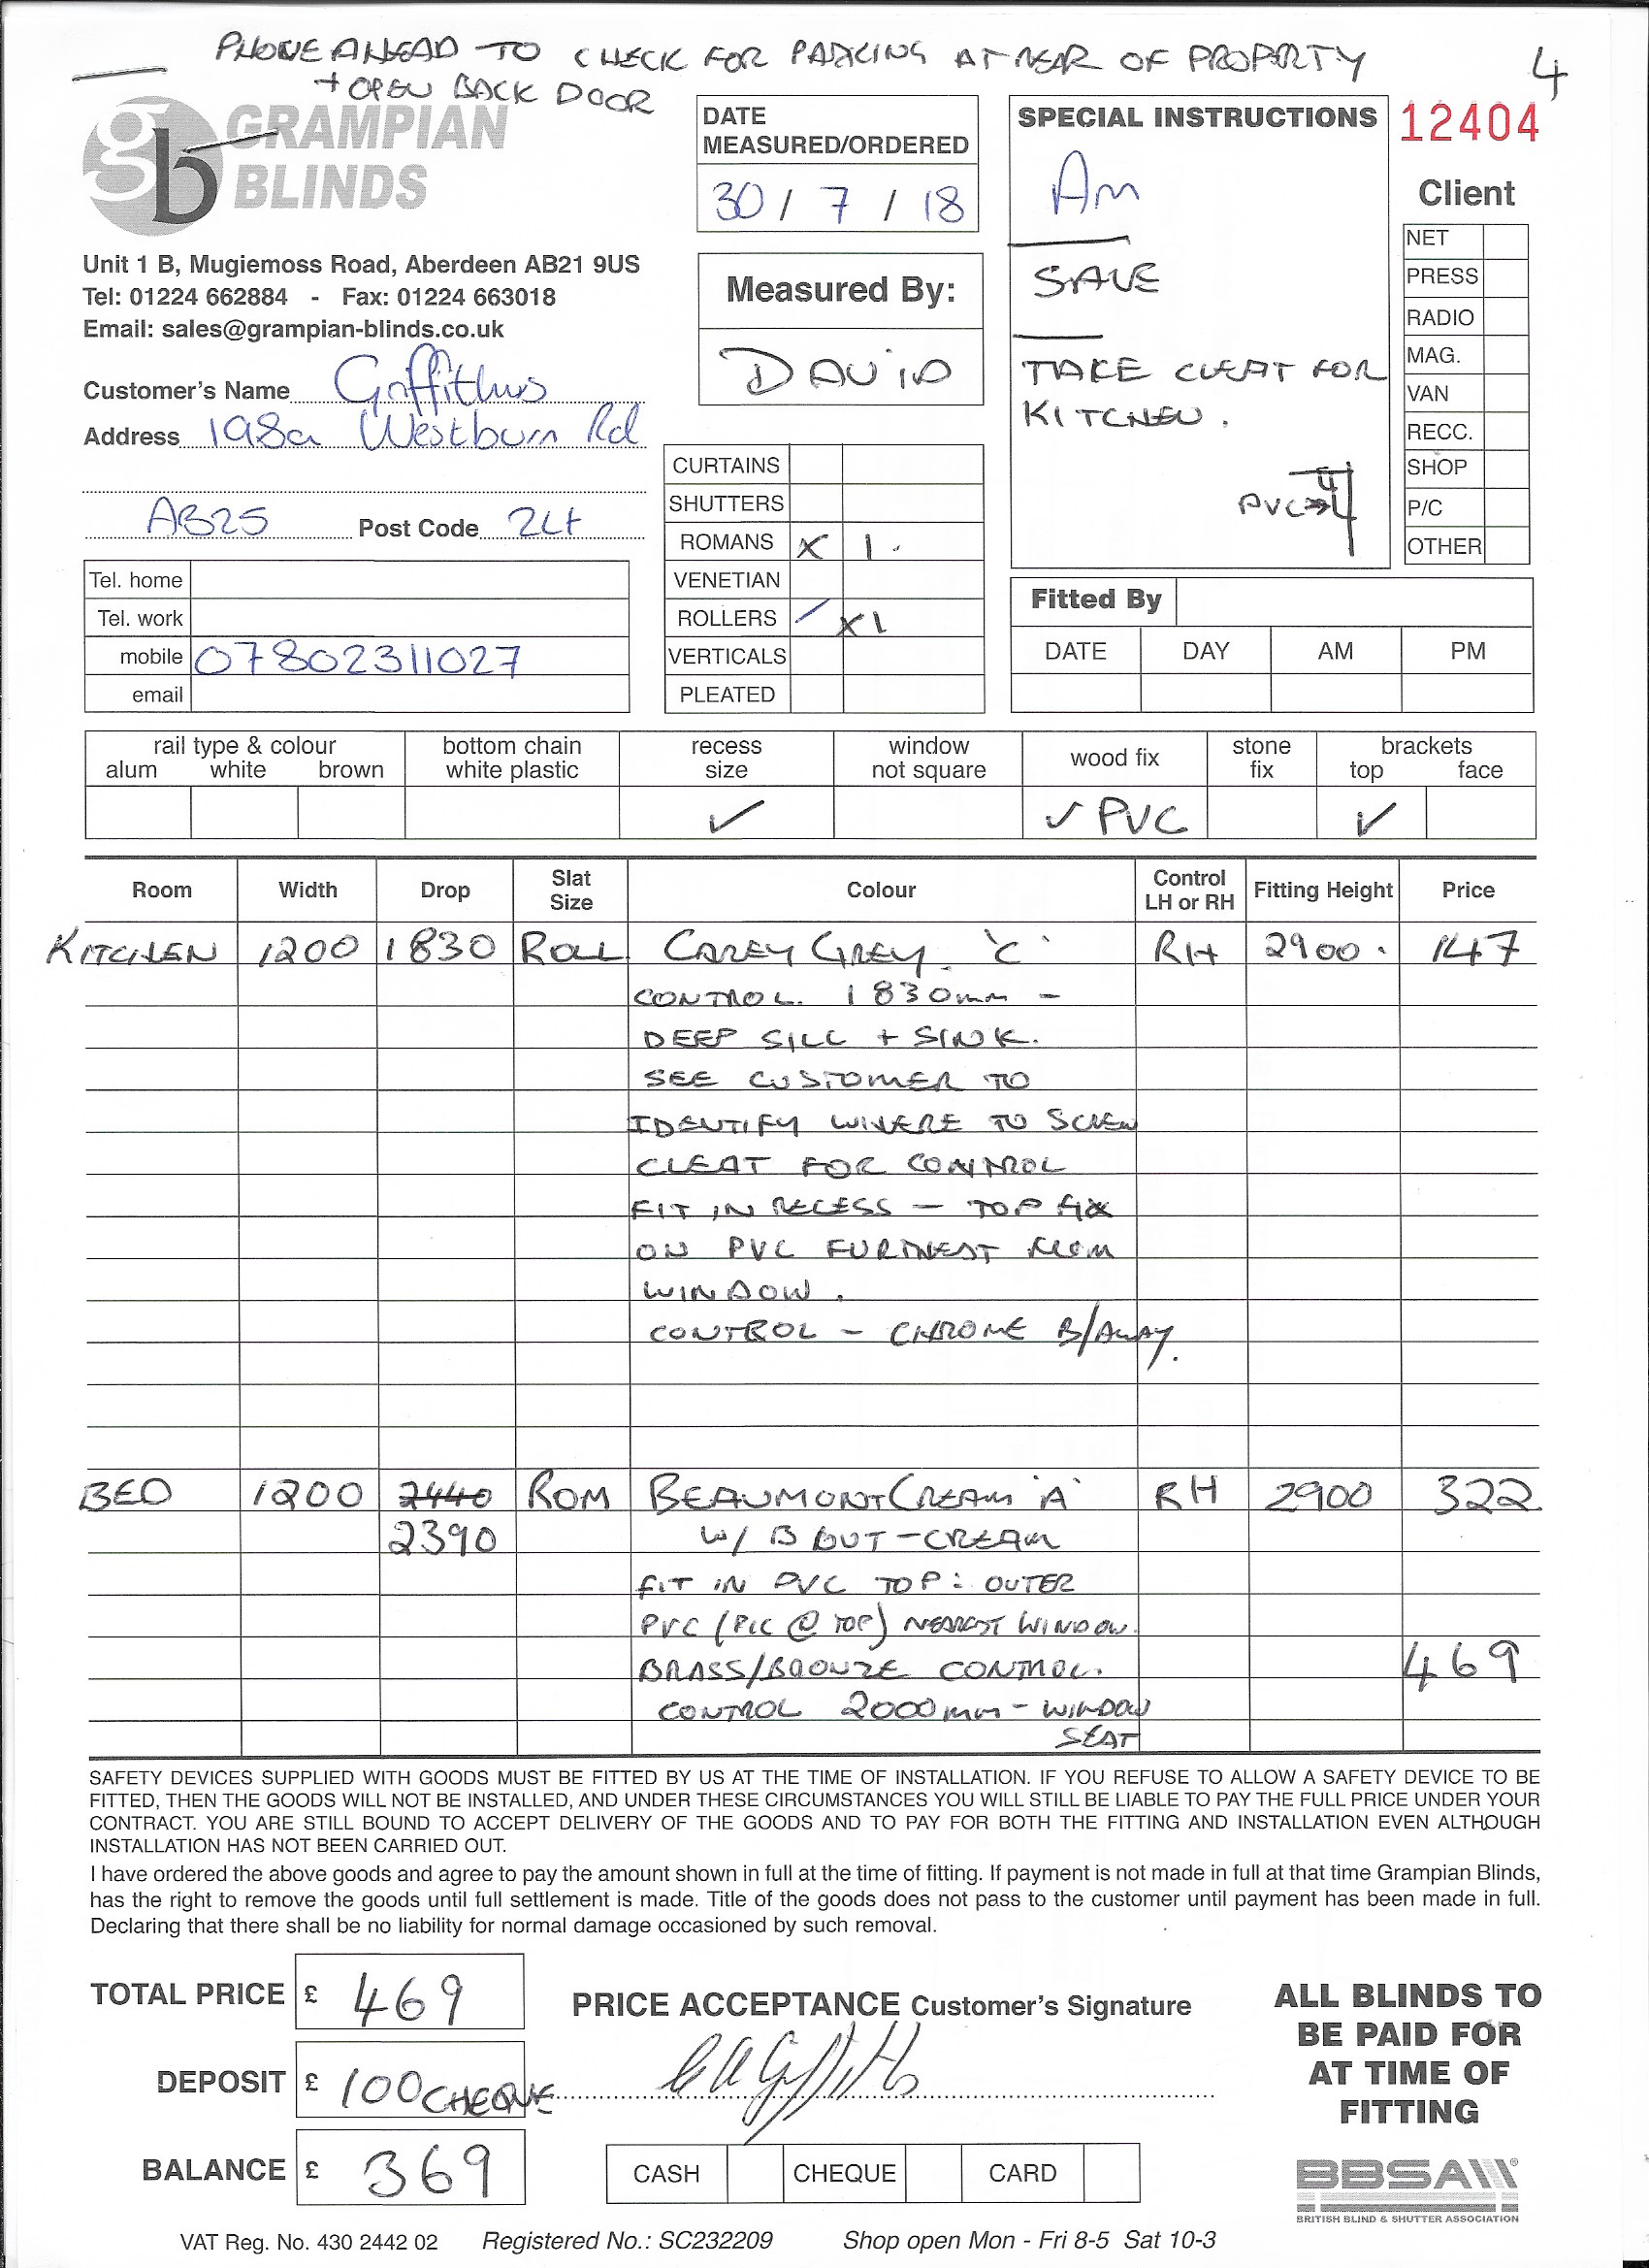 PHONE AHEAD TO CHECK FOR PARKING AT REAR OF PROPERTY
+ OPEN BACK DOOR
4
GRAMPIAN
BLINDS
gb
Unit 1 B, Mugiemoss Road, Aberdeen AB21 9US
Tel: 01224 662884 - Fax: 01224 663018
Email: sales@grampian-blinds.co.uk
Customer's Name Griffiths
Address 198a Westburn Rd
AB25 Post Code 2LT
Tel. home
Tel. work
mobile 07802311027
email
DATE
MEASURED/ORDERED
30 / 7 / 18
Measured By:
DAVID
CURTAINS
SHUTTERS
ROMANS X 1.
VENETIAN
ROLLERS / X1
VERTICALS
PLEATED
SPECIAL INSTRUCTIONS
Am
SALE
TAKE CLEAT FOR
KITCHEN.
PVC
12404
Client
NET
PRESS
RADIO
MAG.
VAN
RECC.
SHOP
P/C
OTHER
Fitted By
DATE DAY AM PM
rail type & colour bottom chain recess window wood fix stone brackets
alum white brown white plastic size not square fix top face
✓ ✓ PVC ✓
Room Width Drop Slat Size Colour Control LH or RH Fitting Height Price
KITCHEN 1200 1830 ROLL CAREY GREY. 'C' RH 2900. 147
CONTROL. 1830mm -
DEEP SILL + SINK.
SEE CUSTOMER TO
IDENTIFY WHERE TO SCREW
CLEAT FOR CONTROL
FIT IN RECESS - TOP FIX
ON PVC FURTHEST FROM
WINDOW.
CONTROL - CHROME B/AWAY.
BED 1200 2440 ROM BEAUMONT CREAM 'A' RH 2900 322
2390 W/ B OUT - CREAM
FIT IN PVC TOP: OUTER
PVC (PIC @ TOP) NEAREST WINDOW.
BRASS/BRONZE CONTROL. 469
CONTROL 2000mm - WINDOW
SEAT
SAFETY DEVICES SUPPLIED WITH GOODS MUST BE FITTED BY US AT THE TIME OF INSTALLATION. IF YOU REFUSE TO ALLOW A SAFETY DEVICE TO BE
FITTED, THEN THE GOODS WILL NOT BE INSTALLED, AND UNDER THESE CIRCUMSTANCES YOU WILL STILL BE LIABLE TO PAY THE FULL PRICE UNDER YOUR
CONTRACT. YOU ARE STILL BOUND TO ACCEPT DELIVERY OF THE GOODS AND TO PAY FOR BOTH THE FITTING AND INSTALLATION EVEN ALTHOUGH
INSTALLATION HAS NOT BEEN CARRIED OUT.
I have ordered the above goods and agree to pay the amount shown in full at the time of fitting. If payment is not made in full at that time Grampian Blinds,
has the right to remove the goods until full settlement is made. Title of the goods does not pass to the customer until payment has been made in full.
Declaring that there shall be no liability for normal damage occasioned by such removal.
TOTAL PRICE £ 469
DEPOSIT £ 100 CHEQUE
BALANCE £ 369
PRICE ACCEPTANCE Customer's Signature
CASH CHEQUE CARD
ALL BLINDS TO
BE PAID FOR
AT TIME OF
FITTING
BBSA
BRITISH BLIND & SHUTTER ASSOCIATION
VAT Reg. No. 430 2442 02 Registered No.: SC232209 Shop open Mon - Fri 8-5 Sat 10-3